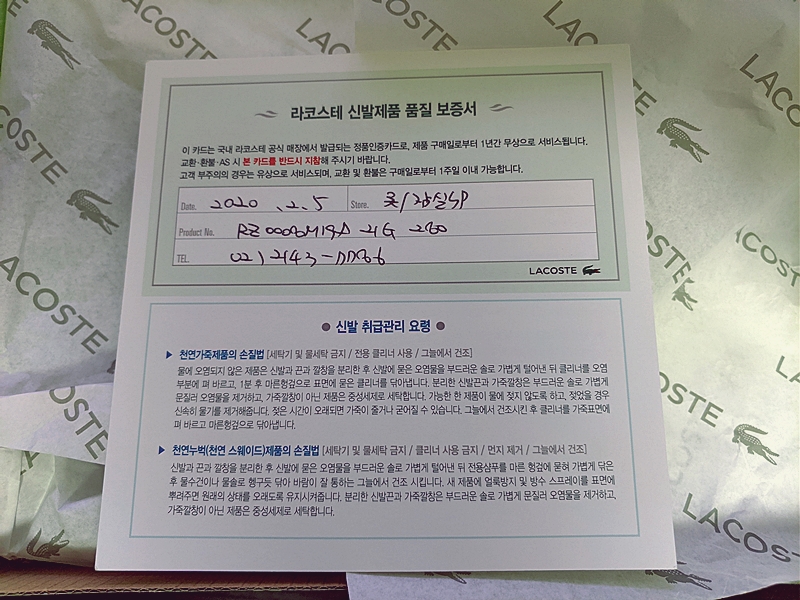 라코스테 신발제품 품질 보증서
이 카드는 국내 라코스테 공식 매장에서 발급되는 정품인증카드로, 제품 구매일로부터 1년간 무상으로 서비스됩니다.
교환·환불·AS 시 본 카드를 반드시 지참해 주시기 바랍니다.
고객 부주의의 경우는 유상으로 서비스되며, 교환 및 환불은 구매일로부터 1주일 이내 가능합니다.
Date. 2020 . 2. 5 Store. 롯/잠실
Product No. 21G 280
TEL. 02) 2143-
LACOSTE
● 신발 취급관리 요령 ●
▶ 천연가죽제품의 손질법 [세탁기 및 물세탁 금지 / 전용 클리너 사용 / 그늘에서 건조]
물에 오염되지 않은 제품은 신발과 끈과 깔창을 분리한 후 신발에 묻은 오염물을 부드러운 솔로 가볍게 털어낸 뒤 클리너를 오염
부분에 펴 바르고, 1분 후 마른헝겊으로 표면에 묻은 클리너를 닦아냅니다. 분리한 신발끈과 가죽깔창은 부드러운 솔로 가볍게
문질러 오염물을 제거하고, 가죽깔창이 아닌 제품은 중성세제로 세탁합니다. 가능한 한 제품이 물에 젖지 않도록 하고, 젖었을 경우
신속히 물기를 제거해줍니다. 젖은 시간이 오래되면 가죽이 줄거나 굳어질 수 있습니다. 그늘에서 건조시킨 후 클리너를 가죽표면에
펴 바르고 마른헝겊으로 닦아냅니다.
▶ 천연누벅(천연 스웨이드)제품의 손질법 [세탁기 및 물세탁 금지 / 클리너 사용 금지 / 먼지 제거 / 그늘에서 건조]
신발과 끈과 깔창을 분리한 후 신발에 묻은 오염물을 부드러운 솔로 가볍게 털어낸 뒤 전용샴푸를 마른 헝겊에 묻혀 가볍게 닦은
후 물수건이나 물솔로 헹구듯 닦아 바람이 잘 통하는 그늘에서 건조 시킵니다. 새 제품에 얼룩방지 및 방수 스프레이를 표면에
뿌려주면 원래의 상태를 오래도록 유지시켜줍니다. 분리한 신발끈과 가죽깔창은 부드러운 솔로 가볍게 문질러 오염물을 제거하고,
가죽깔창이 아닌 제품은 중성세제로 세탁합니다.
LACOSTE
LACOSTE
LACOSTE
LACOSTE
LACOSTE
LACOSTE